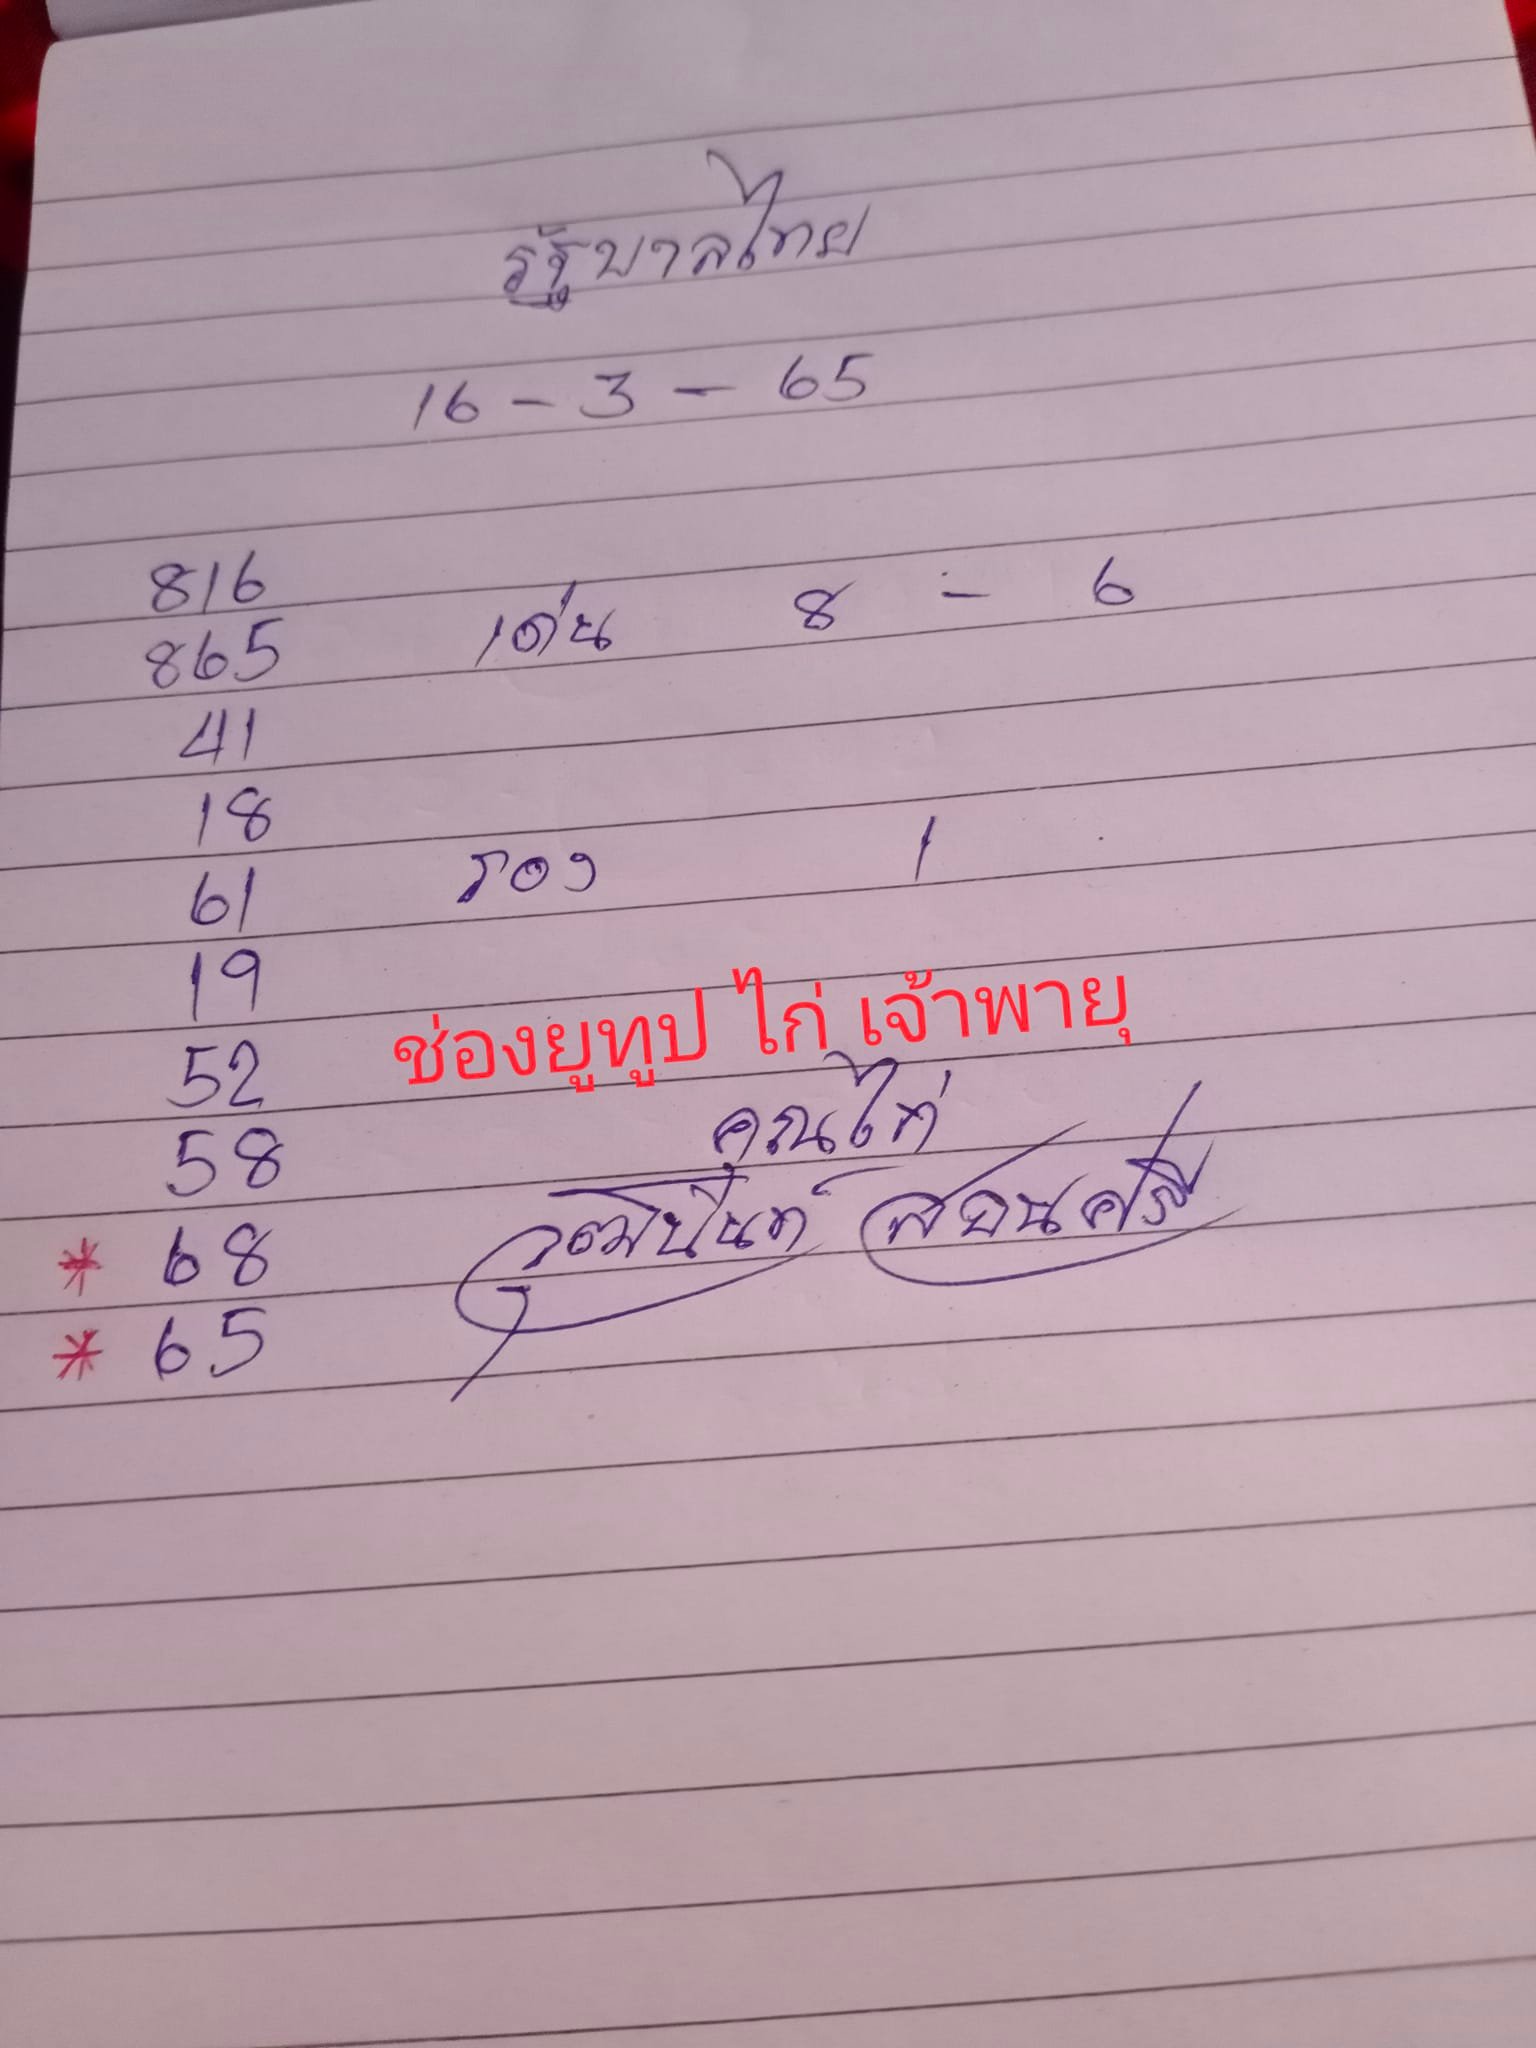 รัฐบาลไทย
16 - 3 - 65
816
865
เด่น 8 - 6
41
18
61
รอง 1
19
52
ช่องยูทูป ไก่ เจ้าพายุ
58
คุณไก่
* 68
* 65